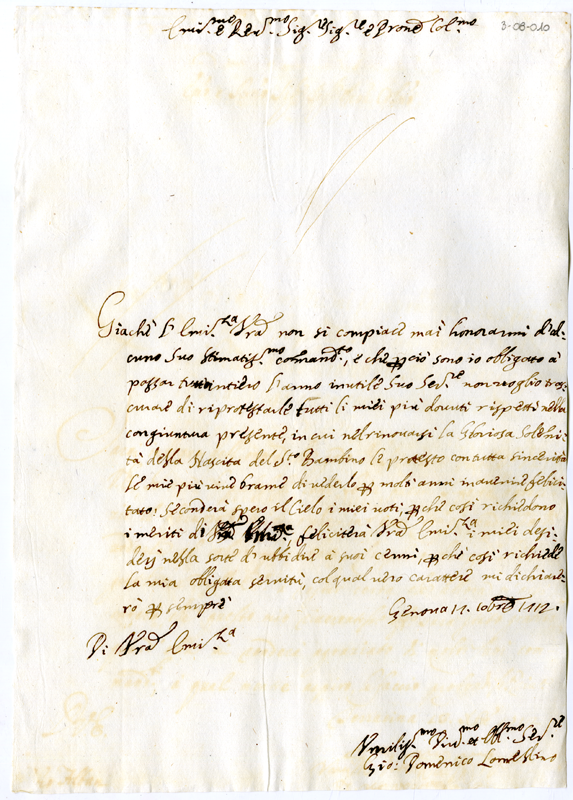 Emi.mo e Rev.mo Sig.r Sig.r e Prone Col.mo
3-08-010
Giachè l'Emi.za Vra non si compiace mai honorarmi d'al-
cuno suo stimatiss.mo comand.to, e che perciò sono io obligato à
passar l'anno inutile suo Ser.re non voglio tras-
curare di riprotestarle tutti li miei più dovuti rispetti nella
congiuntura presente, in cui nel rinovarsi la Gloriosa Solenni-
tà della Nascita del S.to Bambino le protesto con tutta sincerità
le mie più vive brame di vederlo per molti anni in avenire felici-
tato; seconderà spero il Cielo i miei voti, perche così richiedono
i meriti di felicitera Vra Emi.za i miei desi-
derj nella sorte d'ubbidire à suoi cenni, perche così richiede
la mia obligata servitù, col qual vero carattere mi dichiare-
rò per sempre
Genova 17. xbre 1712.
Di Vra Emi.za
Umiliss.mo Div.mo et Obl.mo Ser.re
Gio: Domenico Lomellino